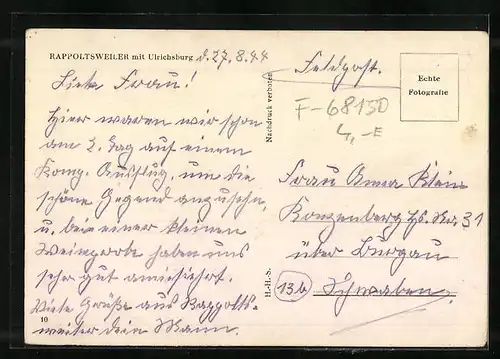 RAPPOLTSWEILER mit Ulrichsburg d. 27.8.44
Liebe Frau!
Hier waren wir schon
am 2. Tag auf einem
Komp. Ausflug, um die
schöne Gegend anzusehn,
u. bei einer kleinen
Weinprobe haben uns
sehr gut amüsiert.
Viele Grüße aus Rappolts-
weiler dein Mann.
10
Nachdruck verboten
H.-H.-S.
Feldpost.
Echte
Fotografie
F-68150
4,-E
Frau Anna Klein
Konzenberg Hs. No. 31
über Burgau
13b Schwaben.